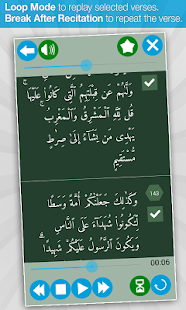 Loop Mode to replay selected verses.
Break After Recitation to repeat the verse.
وَلَّىٰهُمْ عَن قِبْلَتِهِمُ ٱلَّتِى كَانُوا۟ عَلَيْهَا ۚ
قُل لِّلَّهِ ٱلْمَشْرِقُ وَٱلْمَغْرِبُ ۚ
يَهْدِى مَن يَشَآءُ إِلَىٰ صِرَٰطٍ
مُّسْتَقِيمٍ
143
وَكَذَٰلِكَ جَعَلْنَٰكُمْ أُمَّةً وَسَطًا
لِّتَكُونُوا۟ شُهَدَآءَ عَلَى ٱلنَّاسِ
وَيَكُونَ ٱلرَّسُولُ عَلَيْكُمْ شَهِيدًا ۗ
00:06